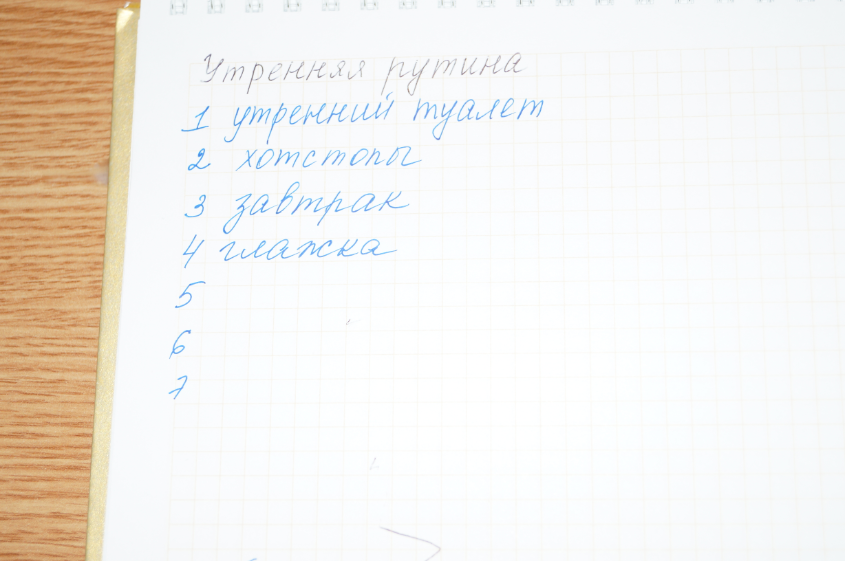 Утренняя рутина
1 утренний туалет
2 хотстопы
3 завтрак
4 глажка
5
6
7